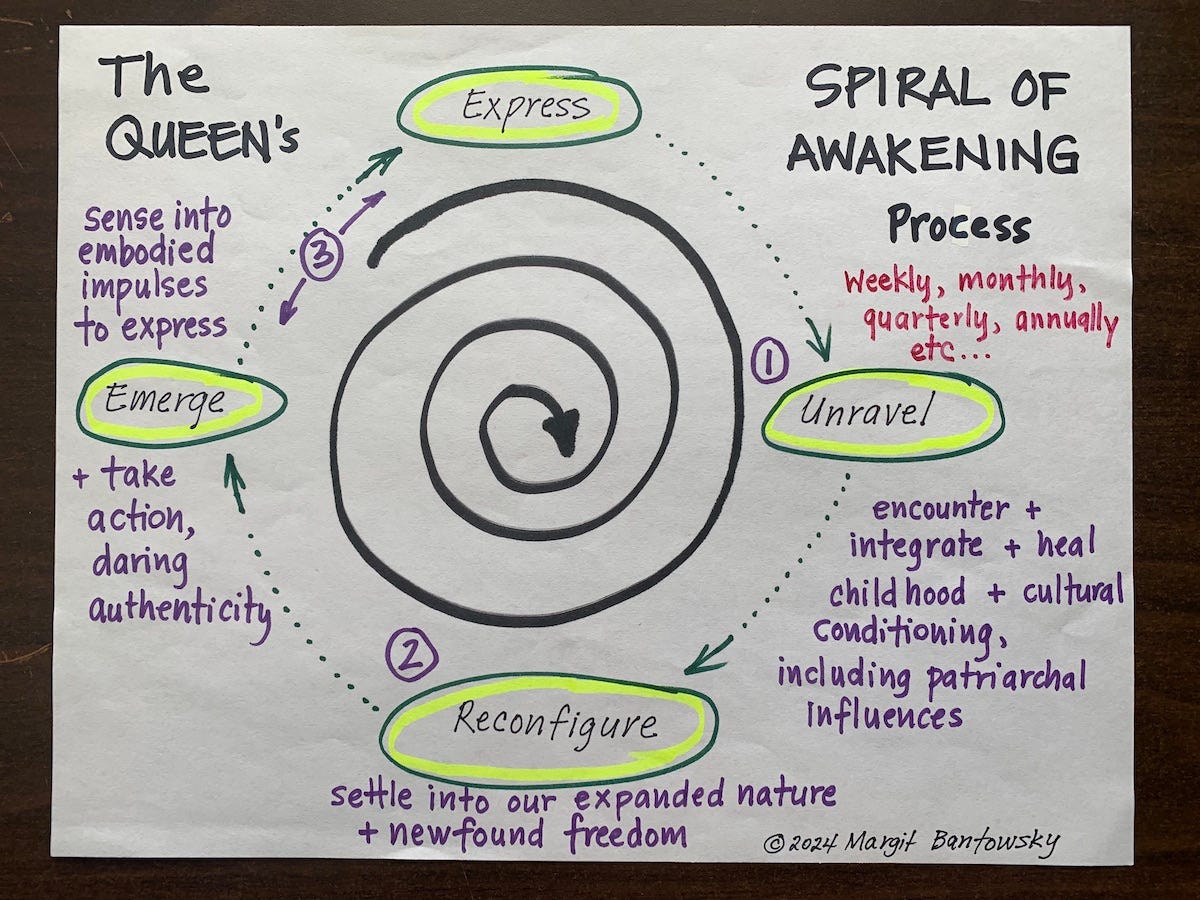 The
QUEEN's
SPIRAL OF
AWAKENING
Process
weekly, monthly,
quarterly, annually
etc...
Express
①
Unravel
encounter +
integrate + heal
childhood + cultural
conditioning,
including patriarchal
influences
②
Reconfigure
settle into our expanded nature
+ newfound freedom
③
sense into
embodied
impulses
to express
Emerge
+ take
action,
daring
authenticity
©2024 Margit Bantowsky